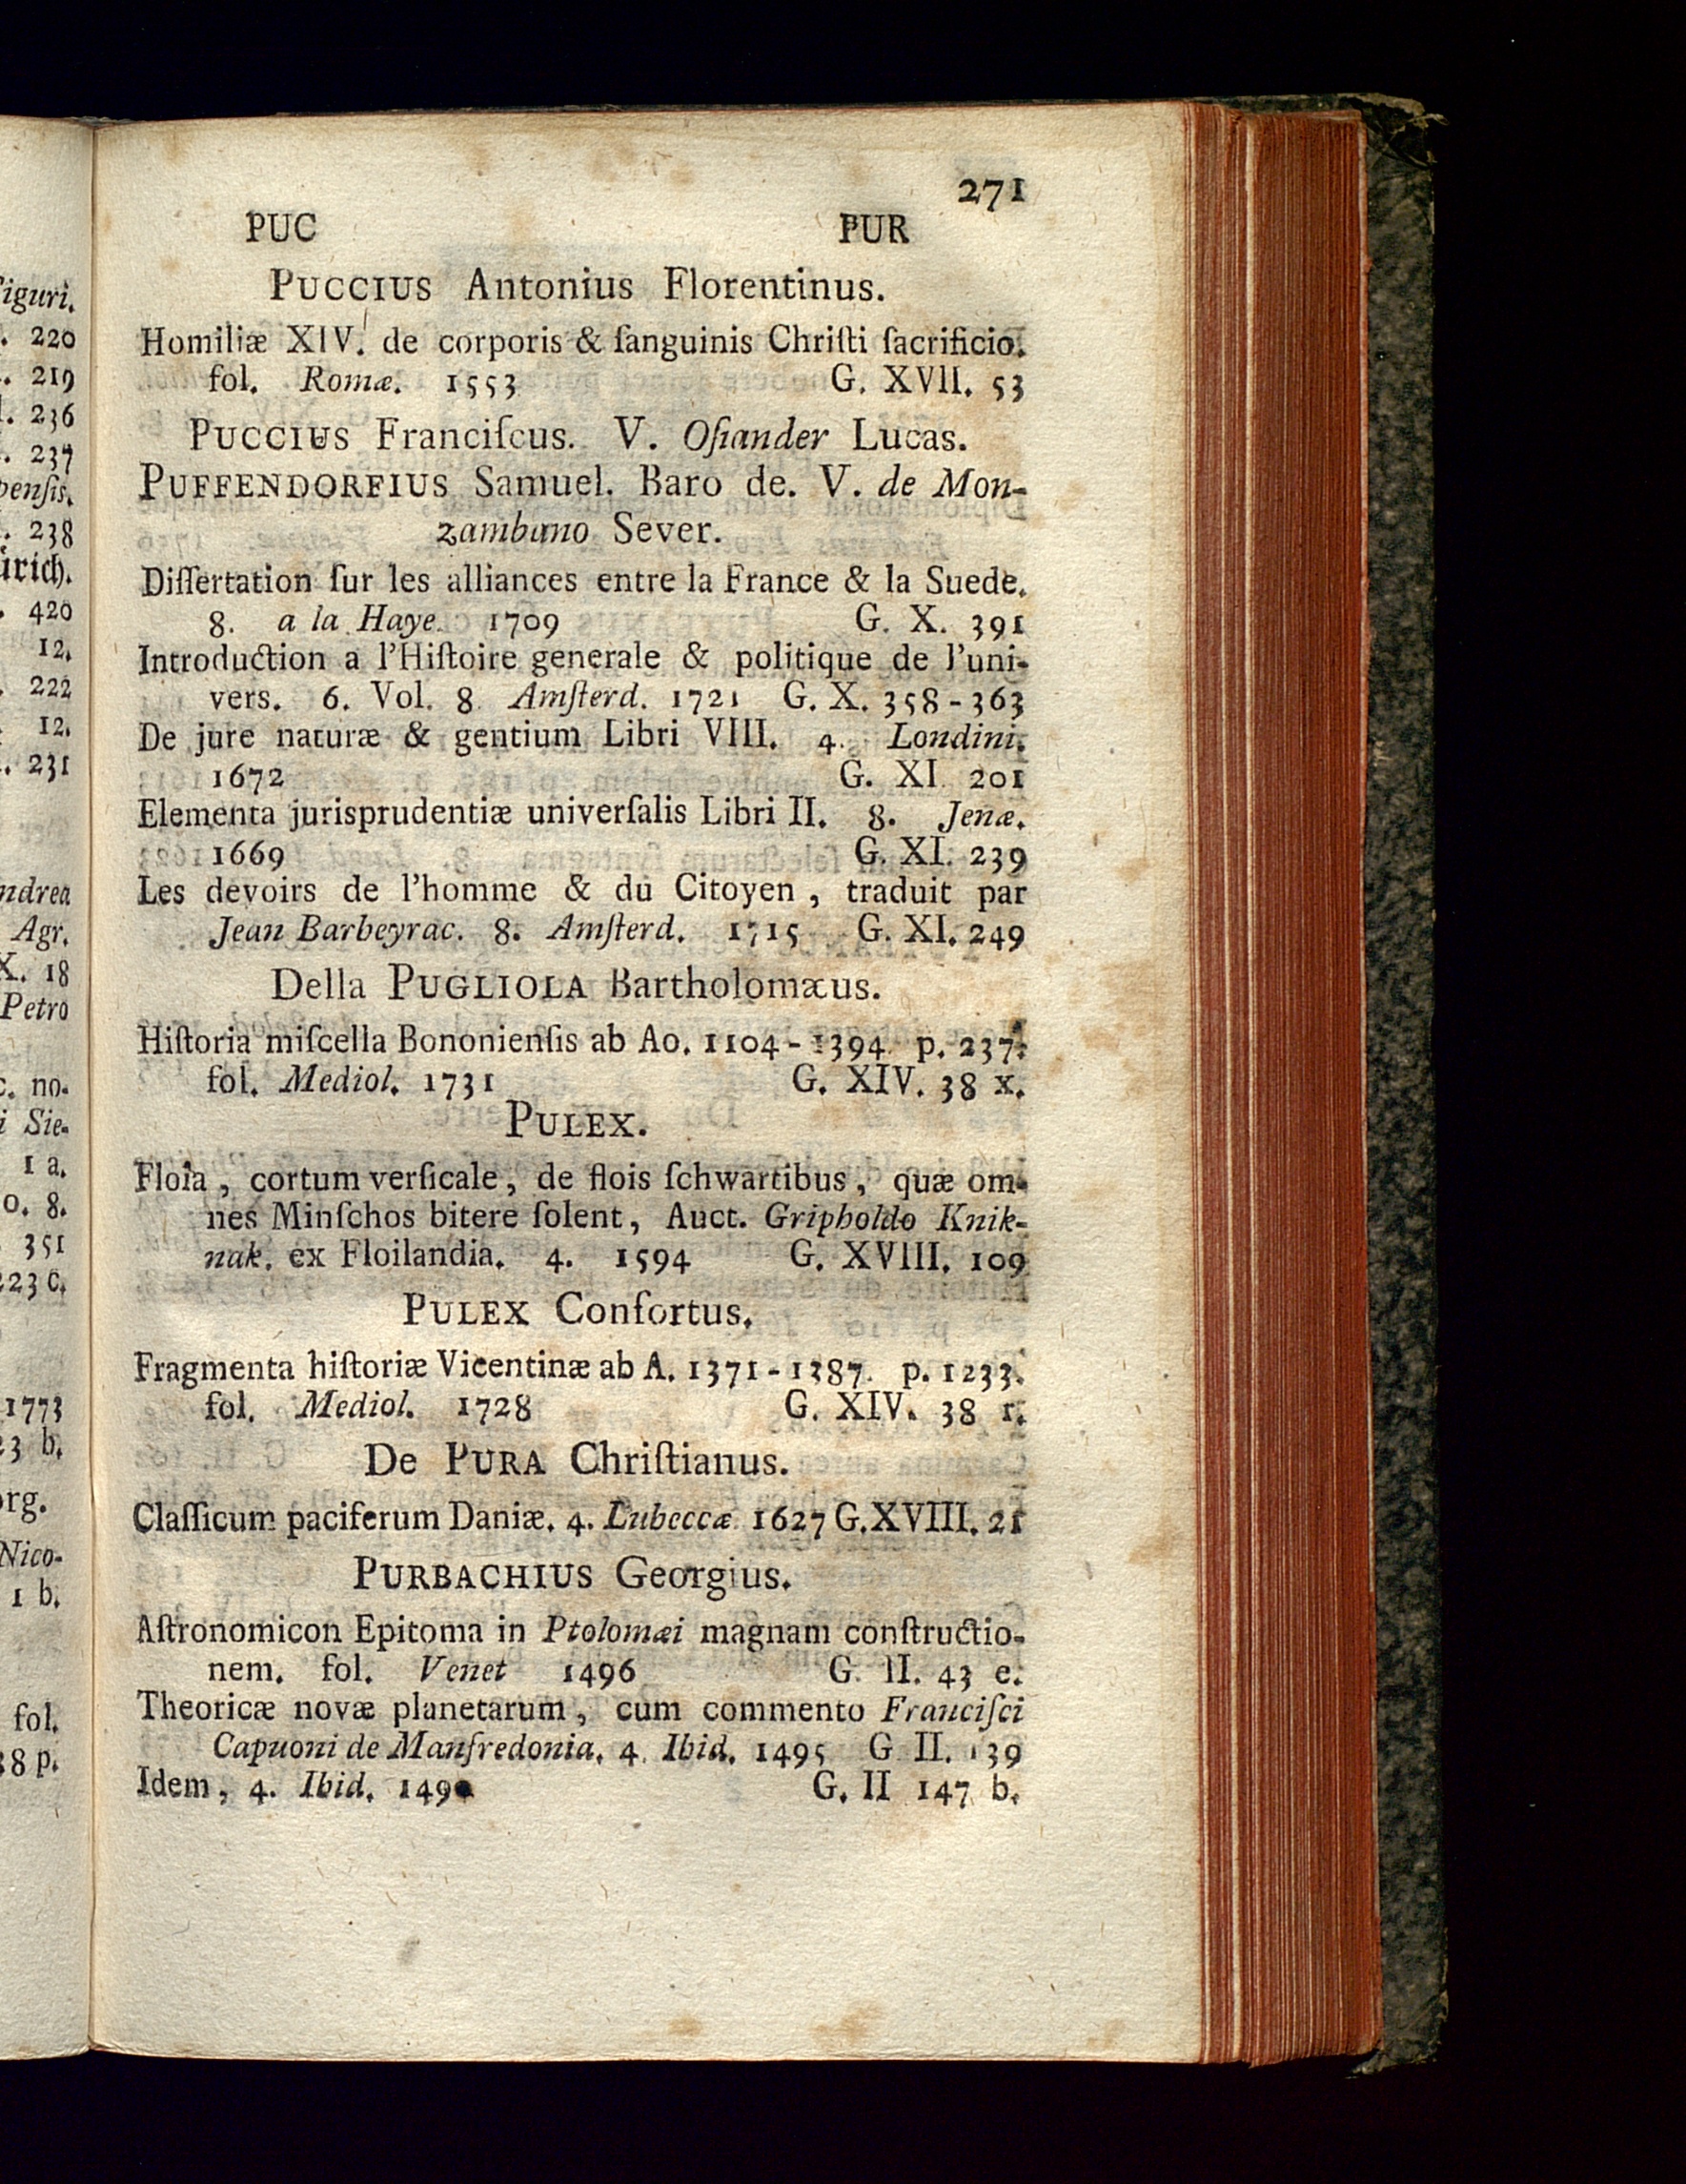 271
PUC PUR
PUCCIUS Antonius Florentinus.
Homiliæ XIV. de corporis & ſanguinis Chriſti ſacrificio.
fol. Romæ. 1553 G. XVII. 53
PUCCIUS Franciſcus. V. Oſiander Lucas.
PUFFENDORFIUS Samuel. Baro de. V. de Mon-
zambano Sever.
Diſſertation ſur les alliances entre la France & la Suede.
8. a la Haye. 1709 G. X. 391
Introduction a l'Hiſtoire generale & politique de l'uni-
vers. 6. Vol. 8. Amſterd. 1721 G. X. 358-363
De jure naturæ & gentium Libri VIII. 4. Londini.
1672 G. XI. 201
Elementa jurisprudentiæ univerſalis Libri II. 8. Jenæ.
1669 G. XI. 239
Les devoirs de l'homme & du Citoyen, traduit par
Jean Barbeyrac. 8. Amſterd. 1715 G. XI. 249
Della PUGLIOLA Bartholomæus.
Hiſtoria miſcella Bononienſis ab Ao. 1104-1394. p. 237.
fol. Mediol. 1731 G. XIV. 38 x.
PULEX.
Floia, cortum verſicale, de flois ſchwartibus, quæ om-
nes Minſchos bitere ſolent, Auct. Gripholdo Knik-
nak. ex Floilandia. 4. 1594 G. XVIII. 109
PULEX Conſortus.
Fragmenta hiſtoriæ Vicentinæ ab A. 1371-1387. p. 1233.
fol. Mediol. 1728 G. XIV. 38 r.
De PURA Chriſtianus.
Claſſicum paciferum Daniæ. 4. Lubeccæ 1627 G. XVIII. 21
PURBACHIUS Georgius.
Aſtronomicon Epitoma in Ptolomæi magnam conſtructio-
nem. fol. Venet 1496 G. II. 43 e.
Theoricæ novæ planetarum, cum commento Franciſci
Capuoni de Manfredonia. 4. Ibid. 1495 G II. 139
Idem, 4. Ibid. G. II 147 b.